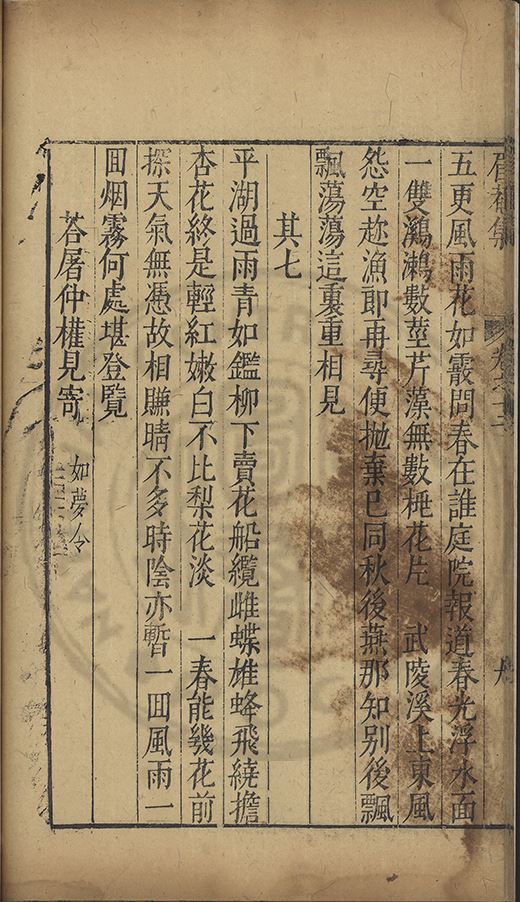 眉菴集 卷之十二
五更風雨花如霰問春在誰庭院報道春光浮水面
一雙鸂鶒數莖芹藻無數桃花片　武陵溪上東風
怨空趂漁郎再尋使抛棄已同秋後燕那知別後飄
飄蕩蕩這裏重相見
其七
平湖過雨青如鑑柳下賣花船纜雌蝶雄蜂飛繞擔
杏花終是輕紅嫩白不比梨花淡　一春能幾花前
探天氣無憑故相賺晴不多時陰亦暫一囬風雨一
囬烟霧何處堪登覽
荅屠仲權見寄　如夢令